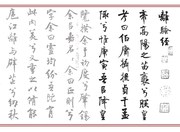 離騷經
帝高陽之苗裔兮朕皇
考曰伯庸攝提貞于孟
陬兮惟庚寅吾以降皇
覽揆余初度兮肇錫
余以嘉名名余曰正則兮
字余曰靈均紛吾既有
此內美兮又重之以脩能
扈江離與辟芷兮紉秋